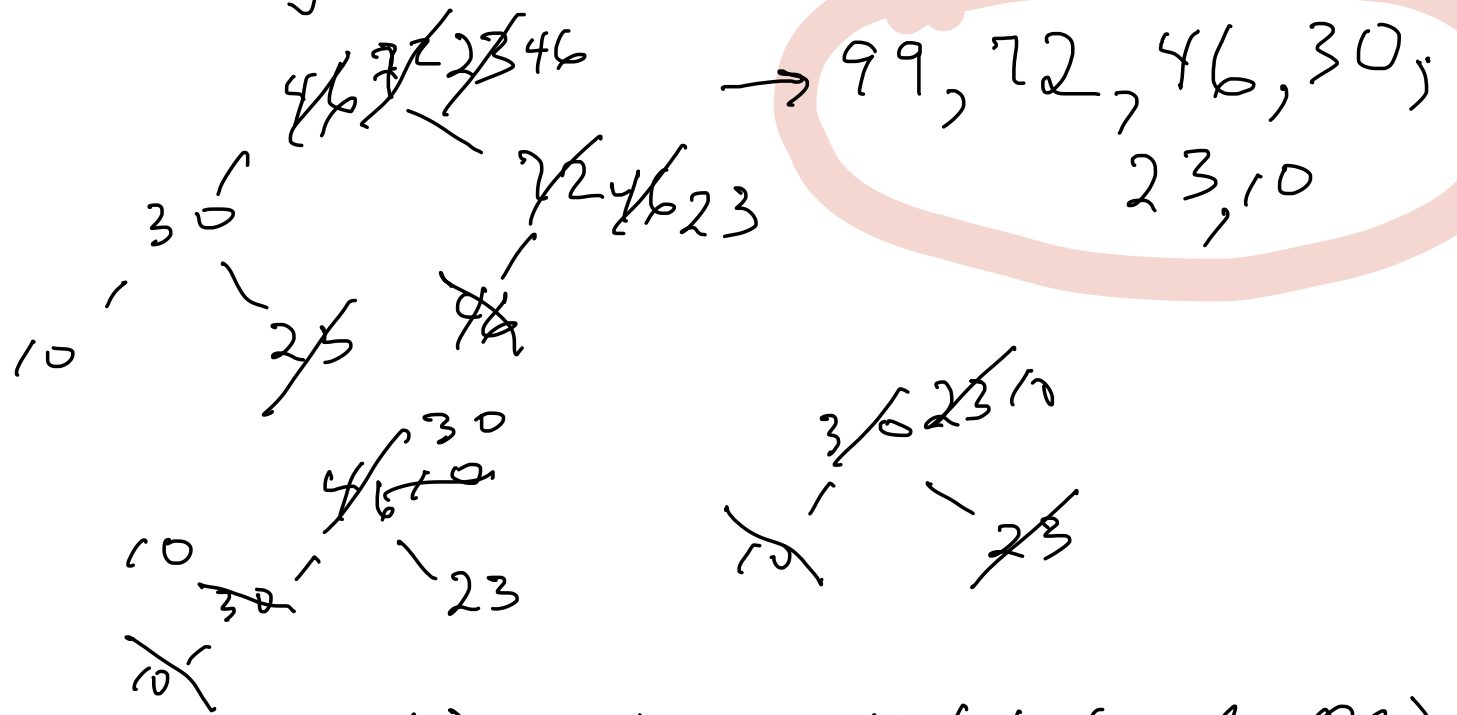 46 72 23 46
→ 99, 72, 46, 30,
23, 10
30
72 46 23
10
23
46
46 10 30
10
30
23
10
30 23 10
10
23